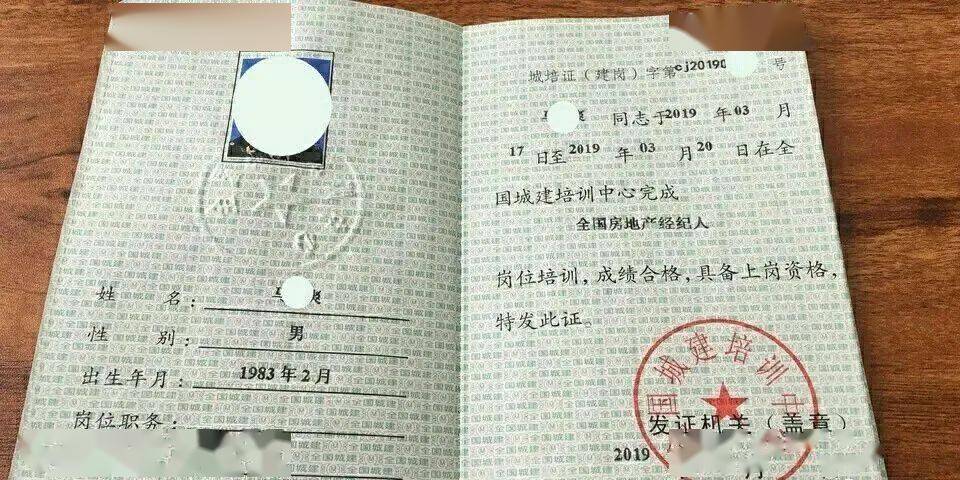 姓 名：
性 别： 男
出生年月： 1983年2月
岗位职务：
城培证（建岗）字第cj20190 号
爽 同志于2019 年 03 月
17 日至 2019 年 03 月 20 日在全
国城建培训中心完成
全国房地产经纪人
岗位培训，成绩合格，具备上岗资格，
特发此证。
全国城建培训中
发证机关（盖章）
2019 月